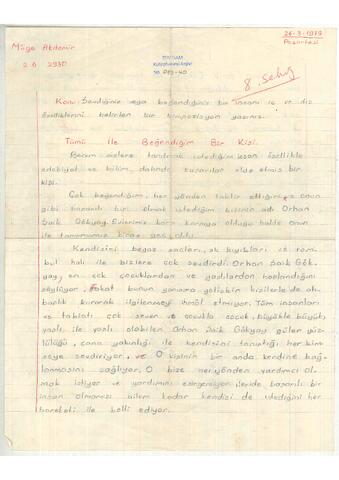 26-3-1979
Pazartesi
Müge Akdemir
2-B 2930
8. Sekiz
Konu: Sevdiğiniz veya beğendiğiniz bir insanı iç ve dış
özelliklerini belirten bir kompozisyon yazınız.
Tümü İle Beğendiğim Bir Kişi.
Benim sizlere tanıtmak istediğim insan özellikle
edebiyat ve bilim dalında başarılar elde etmiş bir
kişi.
Çok beğendiğim, her yönden takdir ettiğim, onun
gibi başarılı bir olmak istediğim kişinin adı Orhan
Şaik Gökyay. Evlerimiz karşı karşıya olduğu halde onun
ile tanışmamız biraz geç oldu.
Kendisini beyaz saçları, ak bıyıkları ve
hali ile bizlere çok sevdirdi. Orhan Şaik Gök-
yay, en çok çocuklardan ve yaşlılardan hoşlandığını
söylüyor, fakat bunun yanısıra yetişkin kişilerle de ah-
baplık kurarak ilgilenmeyi ihmâl etmiyor. Tüm insanları
ve tabiatı çok seven ve çocukla çocuk, büyükle büyük,
yaşlı ile yaşlı olabilen Orhan Şaik Gökyay güler yüz-
lülüğü, cana yakınlığı ile kendisini tanıştığı her kim-
seye sevdiriyor, ve o kişinin bir anda kendine bağ-
lanmasını sağlıyor. O bize her yönden yardımcı ol-
mak istiyor ve yardımını esirgemiyor. İleride başarılı bir
insan olmamızı bizlem kadar kendisi de istediğini her
hareketi ile belli ediyor.